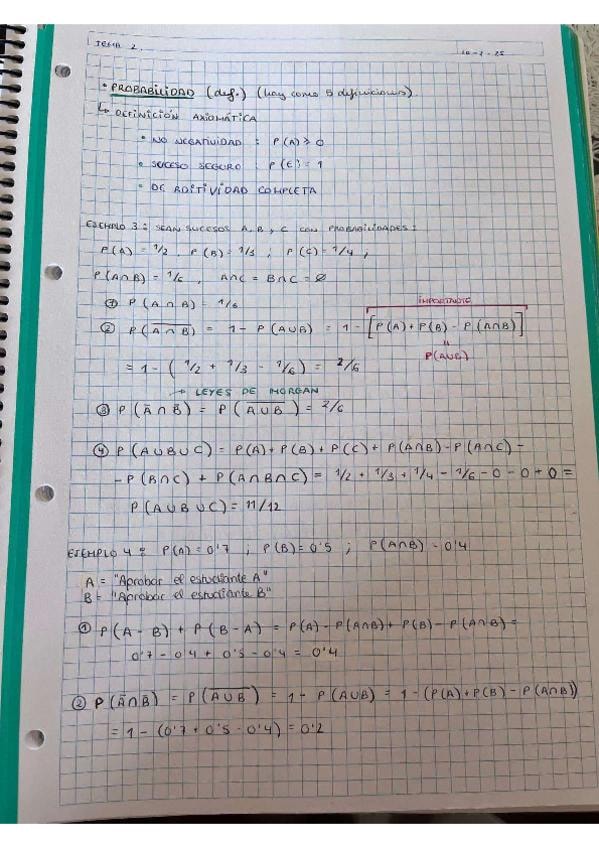 TEMA 2.
10-2-25
• PROBABILIDAD (def.) (hay como 5 definiciones).
↳ DEFINICIÓN AXIOMÁTICA
• NO NEGATIVIDAD : P(A) ≥ 0
• SUCESO SEGURO : P(E) = 1
• DE ADITIVIDAD COMPLETA
EJEMPLO 3 : SEAN SUCESOS A, B, C CON PROBABILIDADES :
P(A) = 1/2 , P(B) = 1/3 ; P(C) = 1/4 ,
P(A∩B) = 1/6 , A∩C = B∩C = ∅
① P(A∩B) = 1/6
IMPORTANTE
② P(\overline{A∩B}) = 1 - P(A∪B) = 1 - [P(A) + P(B) - P(A∩B)]
"
P(A∪B)
= 1 - (1/2 + 1/3 - 1/6) = 2/6
→ LEYES DE MORGAN
③ P(Ā∩B̄) = P(\overline{A∪B}) = 2/6
④ P(A∪B∪C) = P(A) + P(B) + P(C) + P(A∩B) - P(A∩C) -
- P(B∩C) + P(A∩B∩C) = 1/2 + 1/3 + 1/4 - 1/6 - 0 - 0 + 0 =
P(A∪B∪C) = 11/12
EJEMPLO 4 : P(A) = 0'7 ; P(B) = 0'5 ; P(A∩B) = 0'4
A = "Aprobar el estudiante A"
B = "Aprobar el estudiante B"
① P(A - B) + P(B - A) = P(A) - P(A∩B) + P(B) - P(A∩B) =
0'7 - 0'4 + 0'5 - 0'4 = 0'4
② P(Ā∩B̄) = P(\overline{A∪B}) = 1 - P(A∪B) = 1 - (P(A) + P(B) - P(A∩B))
= 1 - (0'7 + 0'5 - 0'4) = 0'2